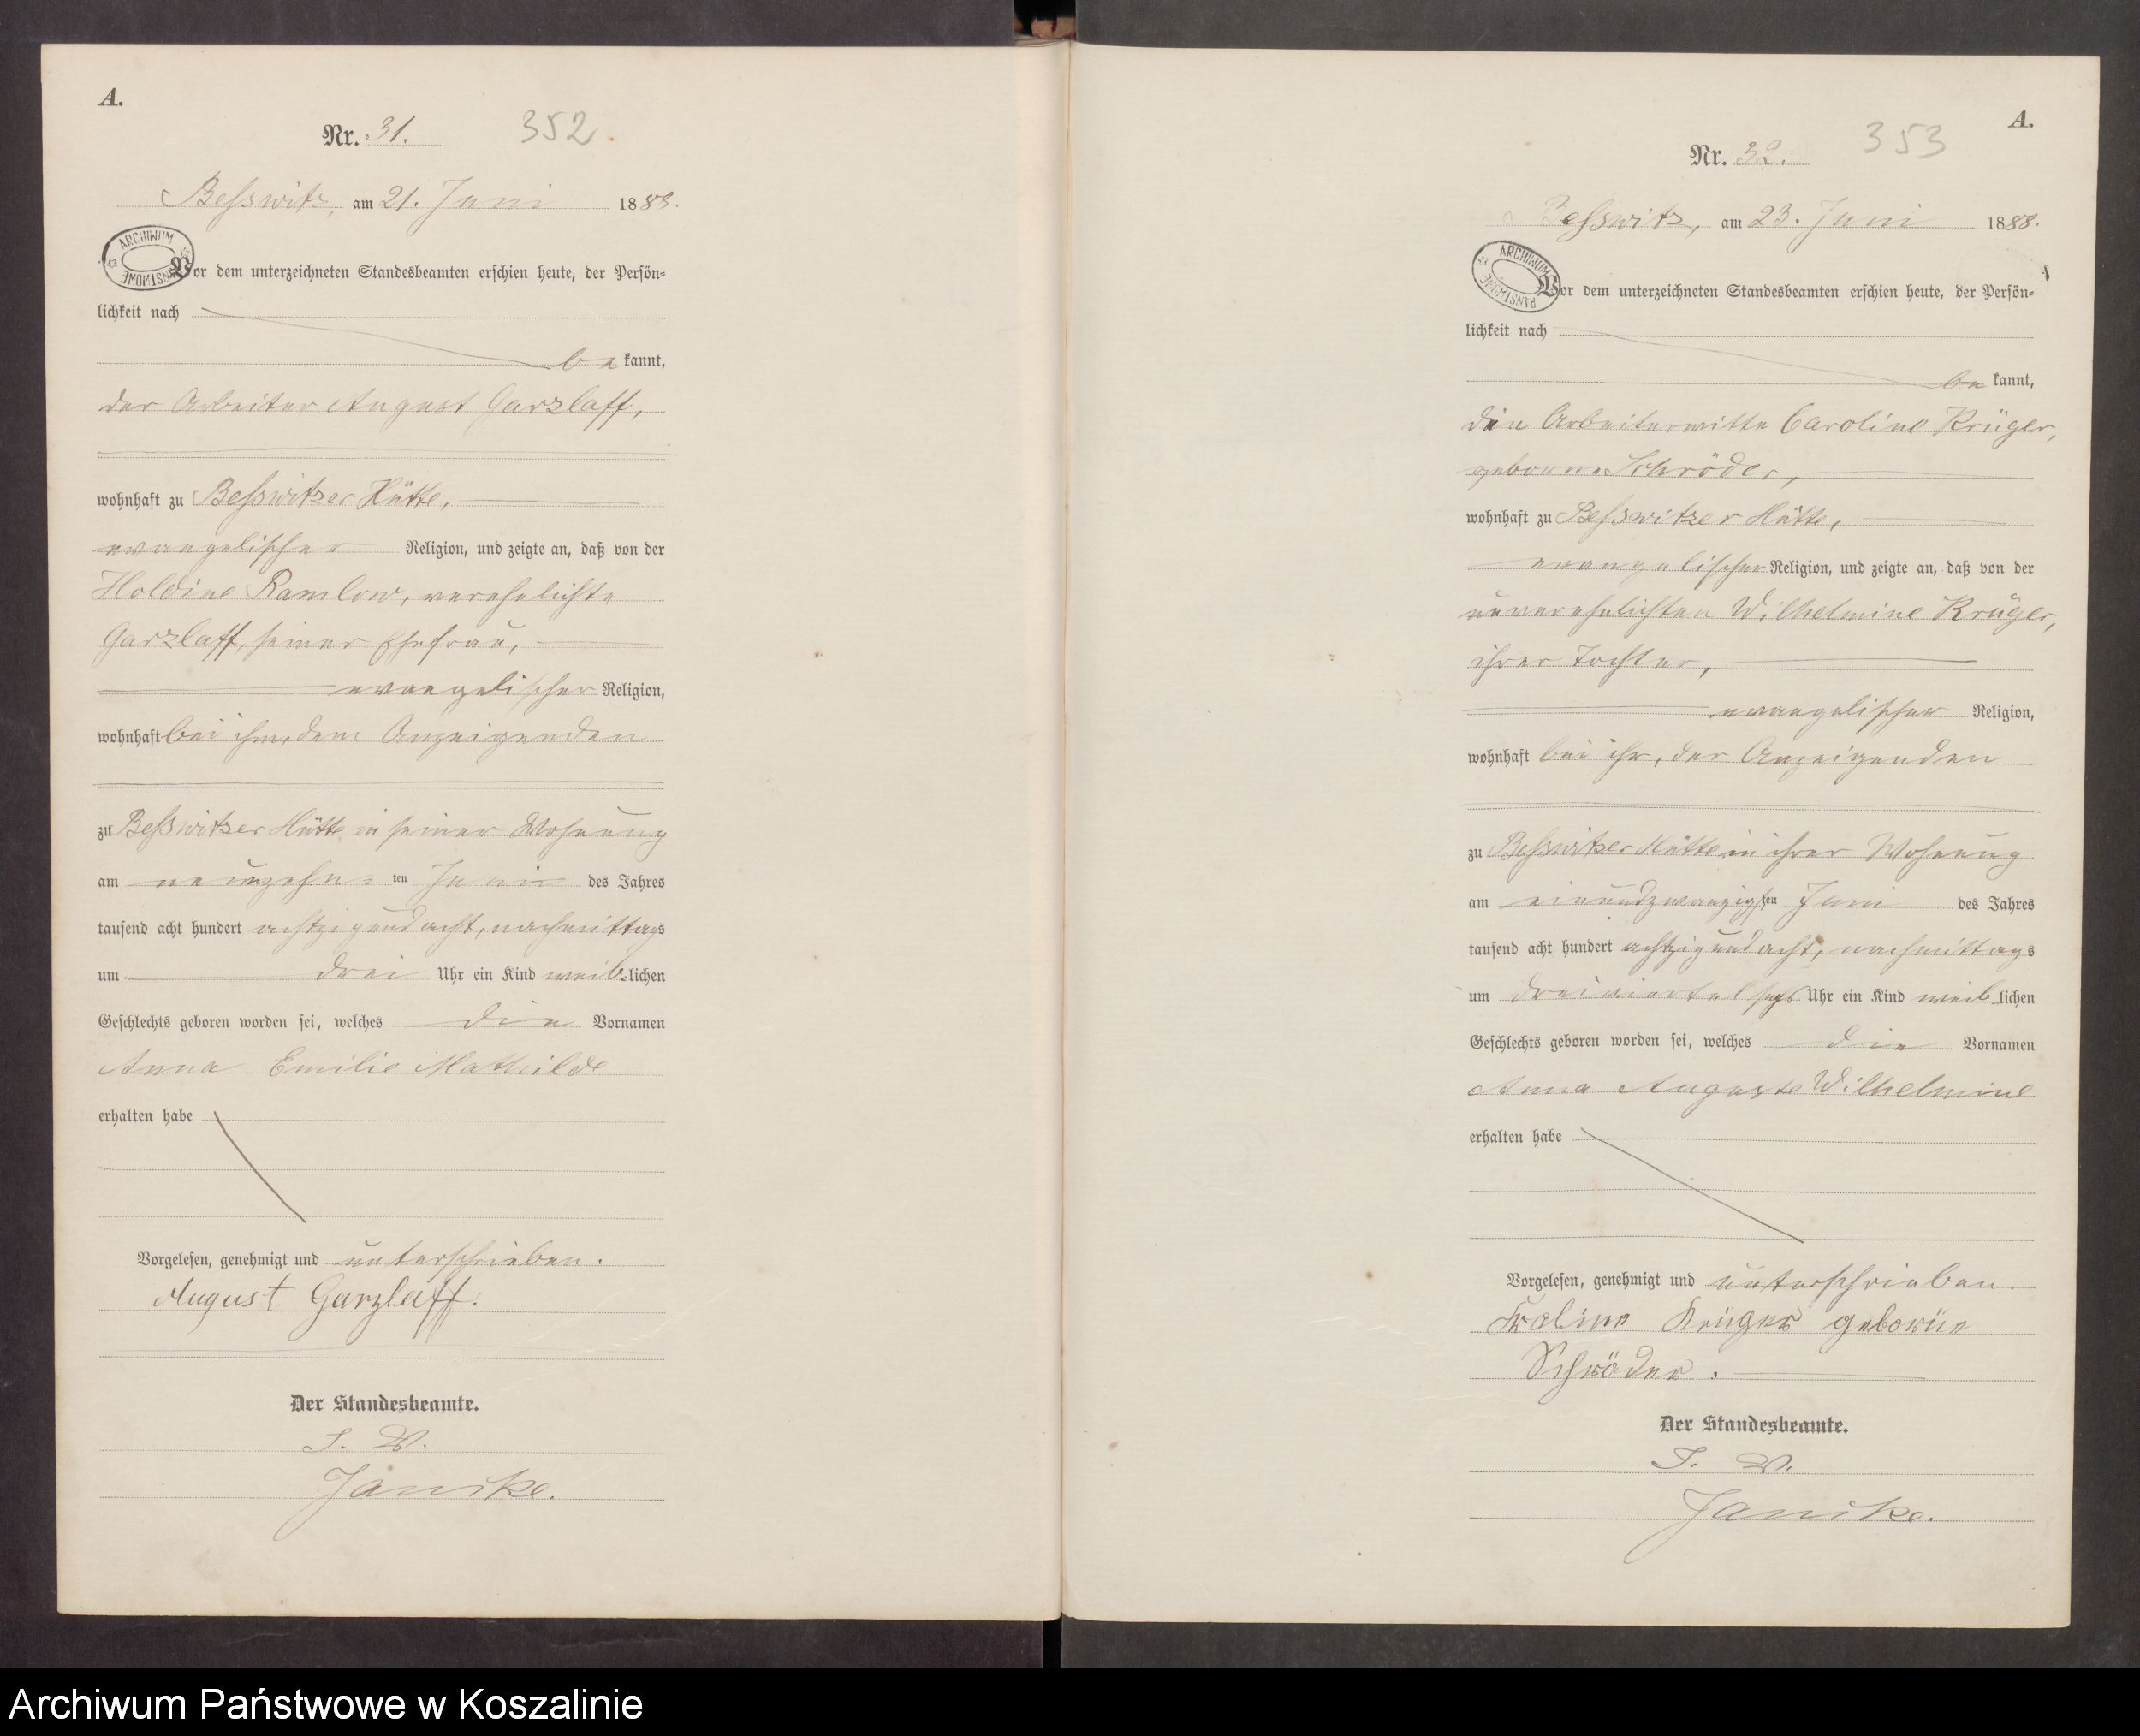 A.
Nr. 31. 352
Beßwitz, am 21. Juni 1888.
ARCHIWUM PAŃSTWOWE
Vor dem unterzeichneten Standesbeamten erschien heute, der Persön=
lichkeit nach
be kannt,
der Arbeiter August Garzlaff,
wohnhaft zu Beßwitzer Hütte,
evangelischer Religion, und zeigte an, daß von der
Holdine Ramlow, verehelichte
Garzlaff, seiner Ehefrau,
evangelischer Religion,
wohnhaft bei ihm, dem Anzeigenden
zu Beßwitzer Hütte in seiner Wohnung
am neunzehn= ten Juni des Jahres
tausend acht hundert achtzig und acht, nachmittags
um drei Uhr ein Kind weib=lichen
Geschlechts geboren worden sei, welches die Vornamen
Anna Emilie Mathilde
erhalten habe
Vorgelesen, genehmigt und unterschrieben.
August Garzlaff.
Der Standesbeamte.
I. V.
Janike.
A.
Nr. 32. 353
Beßwitz, am 23. Juni 1888.
ARCHIWUM PAŃSTWOWE
Vor dem unterzeichneten Standesbeamten erschien heute, der Persön=
lichkeit nach
be kannt,
die Arbeiterwitte Caroline Krüger,
geborne Schröder,
wohnhaft zu Beßwitzer Hütte,
evangelischer Religion, und zeigte an, daß von der
unverehelichten Wilhelmine Krüger,
ihrer Tochter,
evangelischer Religion,
wohnhaft bei ihr, der Anzeigenden
zu Beßwitzer Hütte in ihrer Wohnung
am einundzwanzigsten Juni des Jahres
tausend acht hundert achtzig und acht, nachmittags
um dreiviertel sechs Uhr ein Kind weib lichen
Geschlechts geboren worden sei, welches die Vornamen
Anna Auguste Wilhelmine
erhalten habe
Vorgelesen, genehmigt und unterschrieben.
Kroline Krüger geborüe
Schröder.
Der Standesbeamte.
I. V.
Janike.
Archiwum Państwowe w Koszalinie